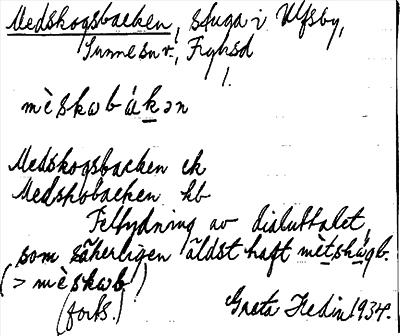 Medskogsbacken, stuga i Ulfsby,
Sunnesn., Fryksd
1.
mèskωbákən
Medskogsbacken ek
Medskobacken hb
Feltydning av dialuttalet,
som säkerligen äldst haft mètskωgb.
(> mèskωb)
(forts.) Greta Hedin 1934.